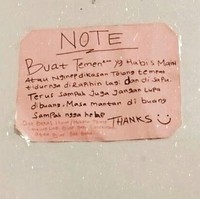 NOTE
Buat Temen" yg Habis Main
Atau Ngnep dikasan Tolong temem
tidurnya di rapihin lagi dan di sapu.
Terus Sampah Juga Jangan Lupa
dibuang. Masa mantan di buang
Sampah ngga hehe
THANKS